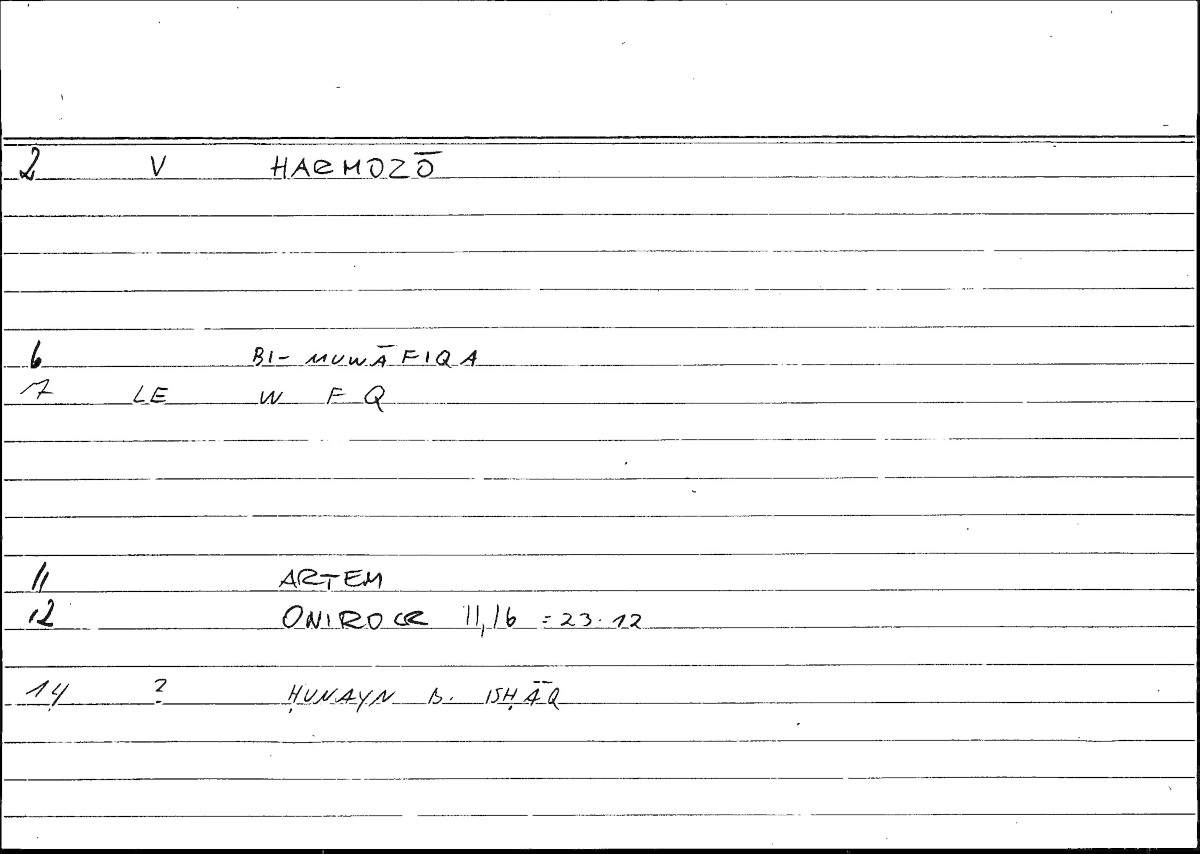 2 V HARMOZŌ
6 BI- MUWĀFIQA
7 LE W F Q
11 ARTEM
12 ONIROCR 11,16 = 23.12
14 ? ḤUNAYN B. ISḤĀQ